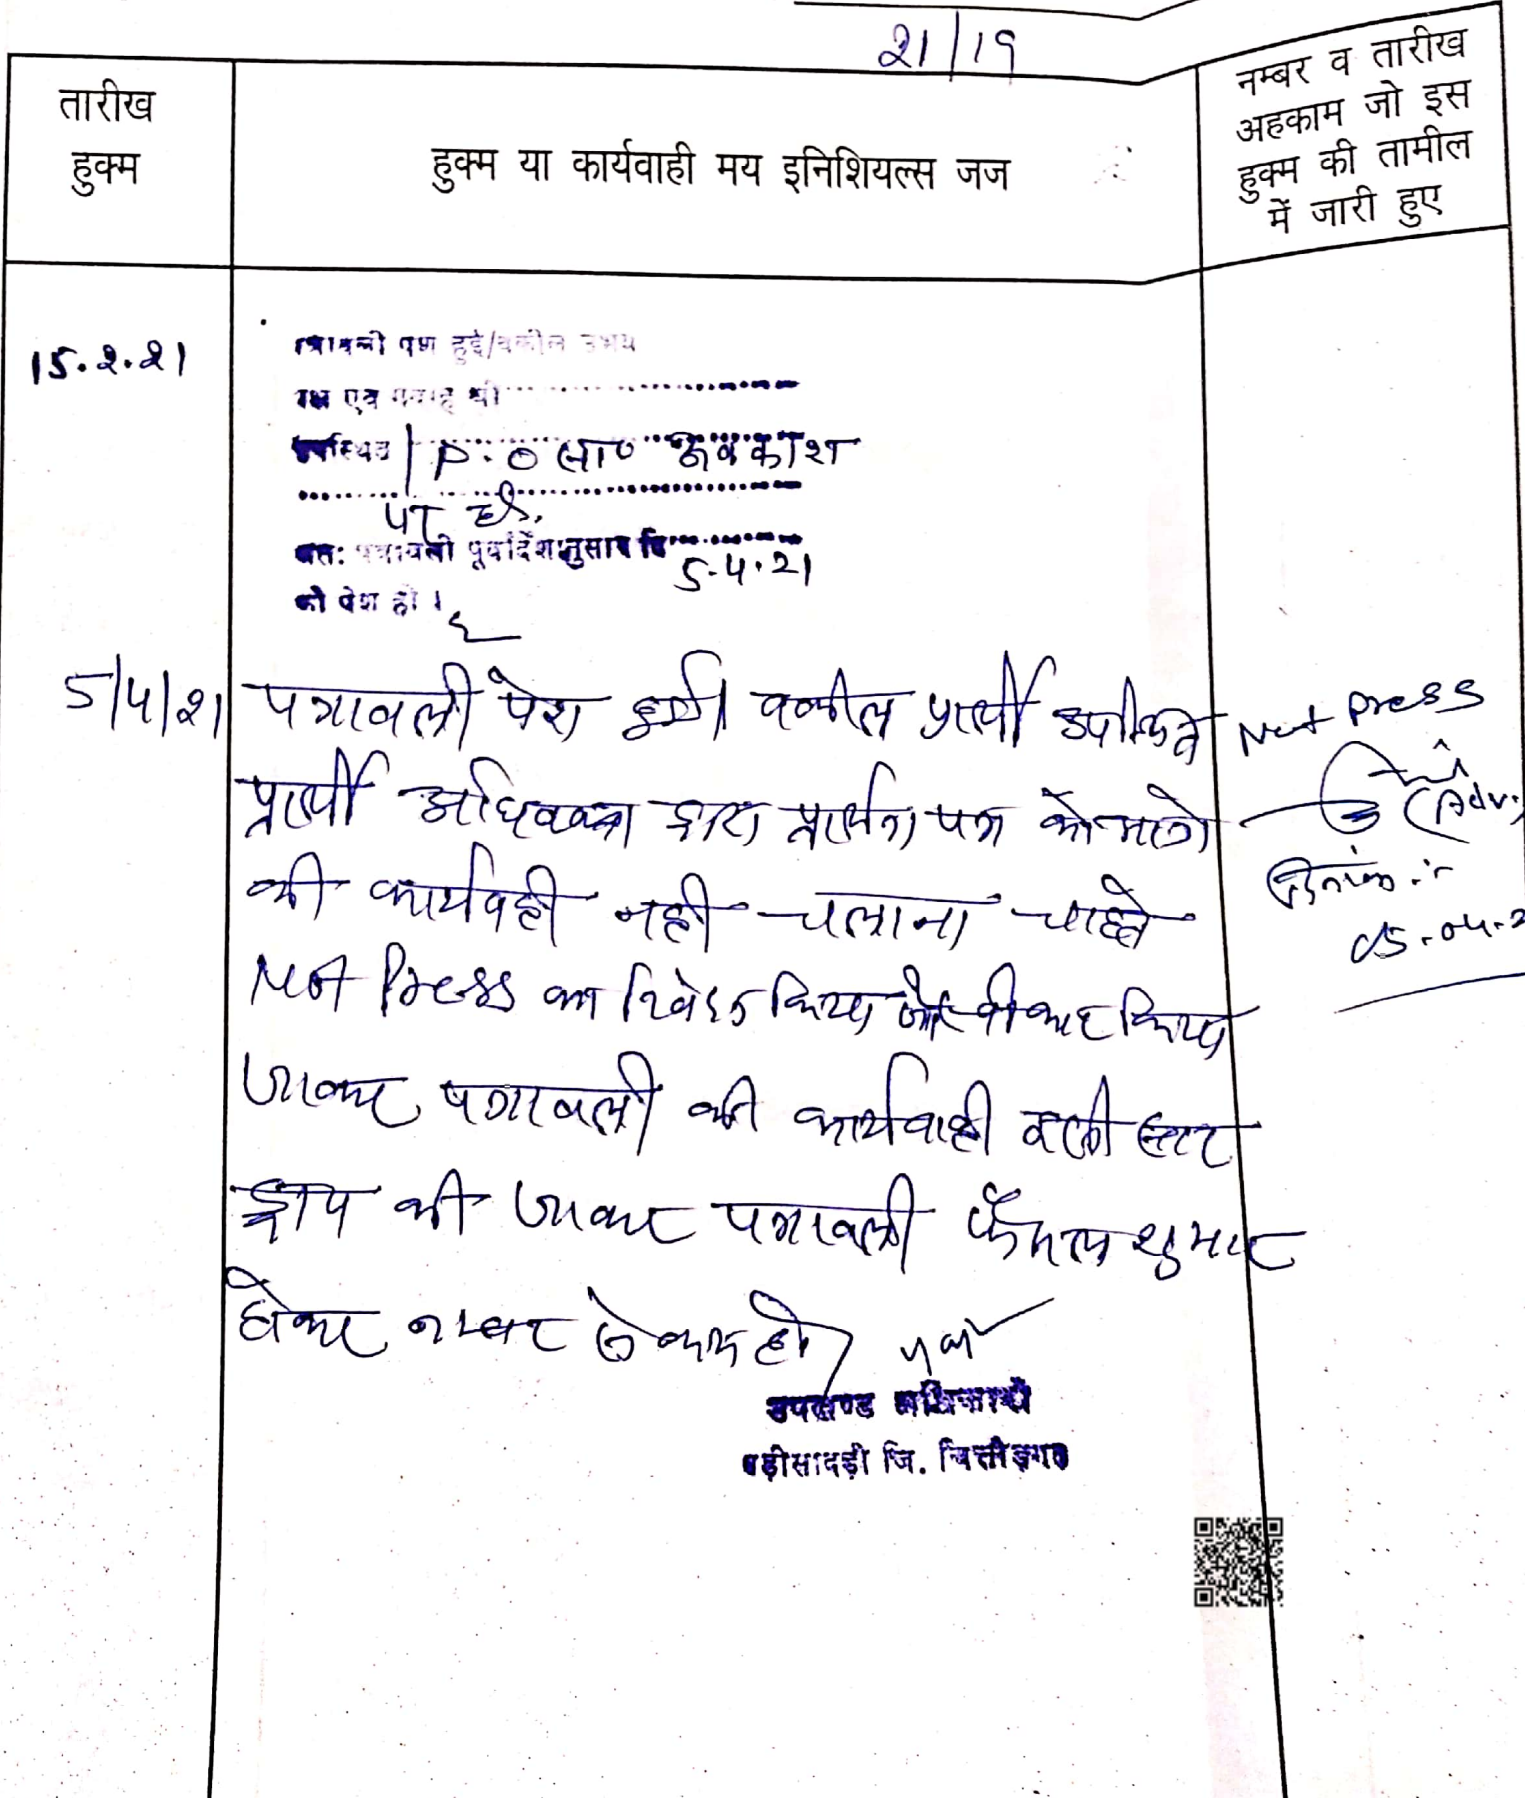 21/19
तारीख
हुक्म
हुक्म या कार्यवाही मय इनिशियल्स जज
नम्बर व तारीख
अहकाम जो इस
हुक्म की तामील
में जारी हुए
15.2.21
पत्रावली पेश हुई/वकील उभय
पक्ष एवं गवाह श्री
उपस्थित / P.O सा० अवकाश
पर है,
अतः पत्रावली पूर्वादेशानुसार दि 5.4.21
को पेश हो ।
5/4/21 पत्रावली पेश हुई। वकील प्रार्थी उपस्थित
प्रार्थी अधिवक्ता द्वारा प्रार्थना पत्र को आगे
की कार्यवाही नही चलाना चाहते
Not Press का निवेदन किया जो स्वीकार किया
जाकर पत्रावली की कार्यवाही इसी स्तर
ड्राप की जाकर पत्रावली फैसल शुमार
होकर नम्बर से कम हो
Not press
(Adv.
05-04-2
उपखण्ड अधिकारी
बड़ीसादड़ी जि. चित्तौड़गढ़